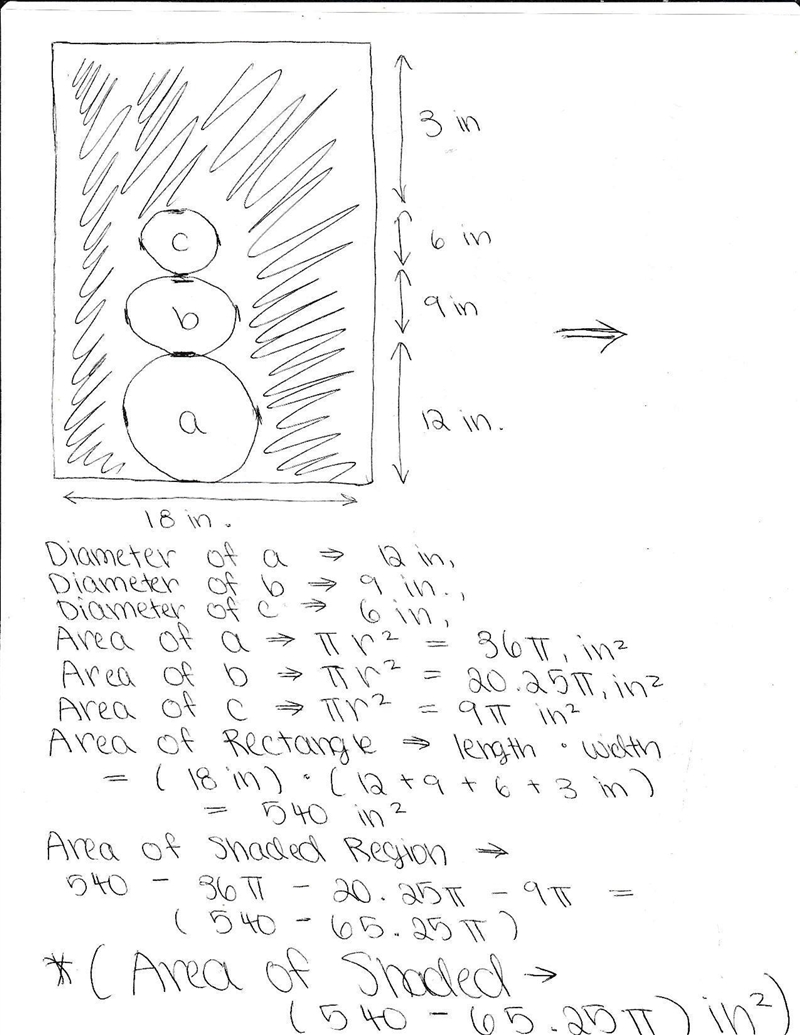 3 in
c
6 in
b
9 in
⇒
a
12 in.
18 in.
Diameter of a ⇒ 12 in,
Diameter of b ⇒ 9 in.,
Diameter of c ⇒ 6 in,
Area of a → πr² = 36π, in²
Area of b → πr² = 20.25π, in²
Area of c ⇒ πr² = 9π in²
Area of Rectangle ⇒ length · width
= (18 in) · (12 + 9 + 6 + 3 in)
= 540 in²
Area of Shaded Region →
540 - 36π - 20.25π - 9π =
(540 - 65.25π)
*(Area of Shaded →
(540 - 65.25π) in²)